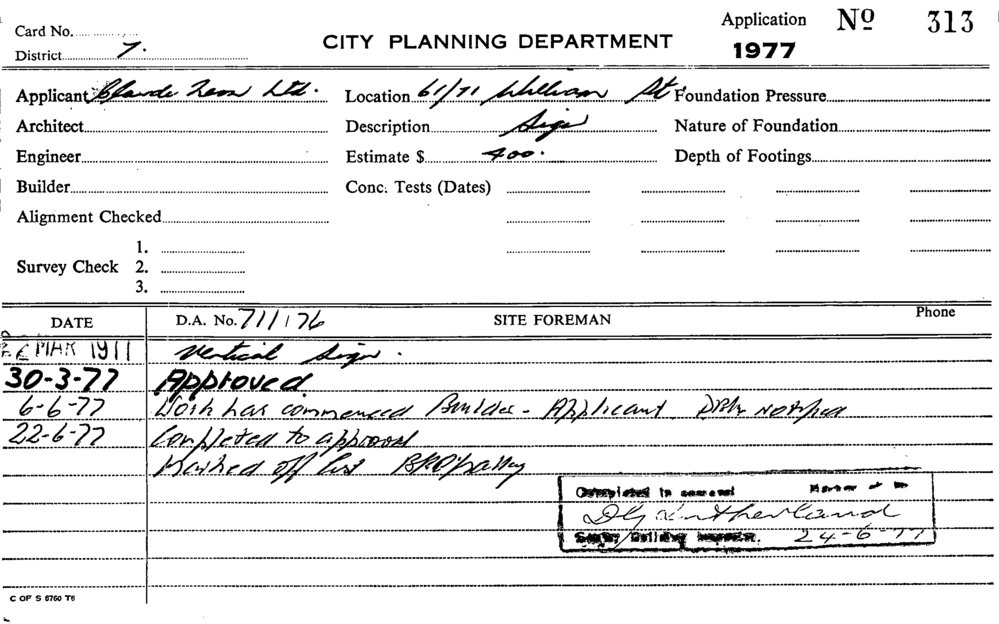 Card No.
District 7.
CITY PLANNING DEPARTMENT
Application Nº 313
1977
Applicant Claude Neon Ltd. Location 61/71 William St Foundation Pressure
Architect Description Sign Nature of Foundation
Engineer Estimate $ 400. Depth of Footings
Builder Conc. Tests (Dates)
Alignment Checked
1.
Survey Check 2.
3.
DATE D.A. No. 711/76 SITE FOREMAN Phone
MAR Vertical Sign.
30-3-77 Approved
6-6-77 Work has commenced Builder - Applicant notified
22-6-77 Completed to approval
Marked off list
Completed to approval
24-6-77
C OF S 5760 T6